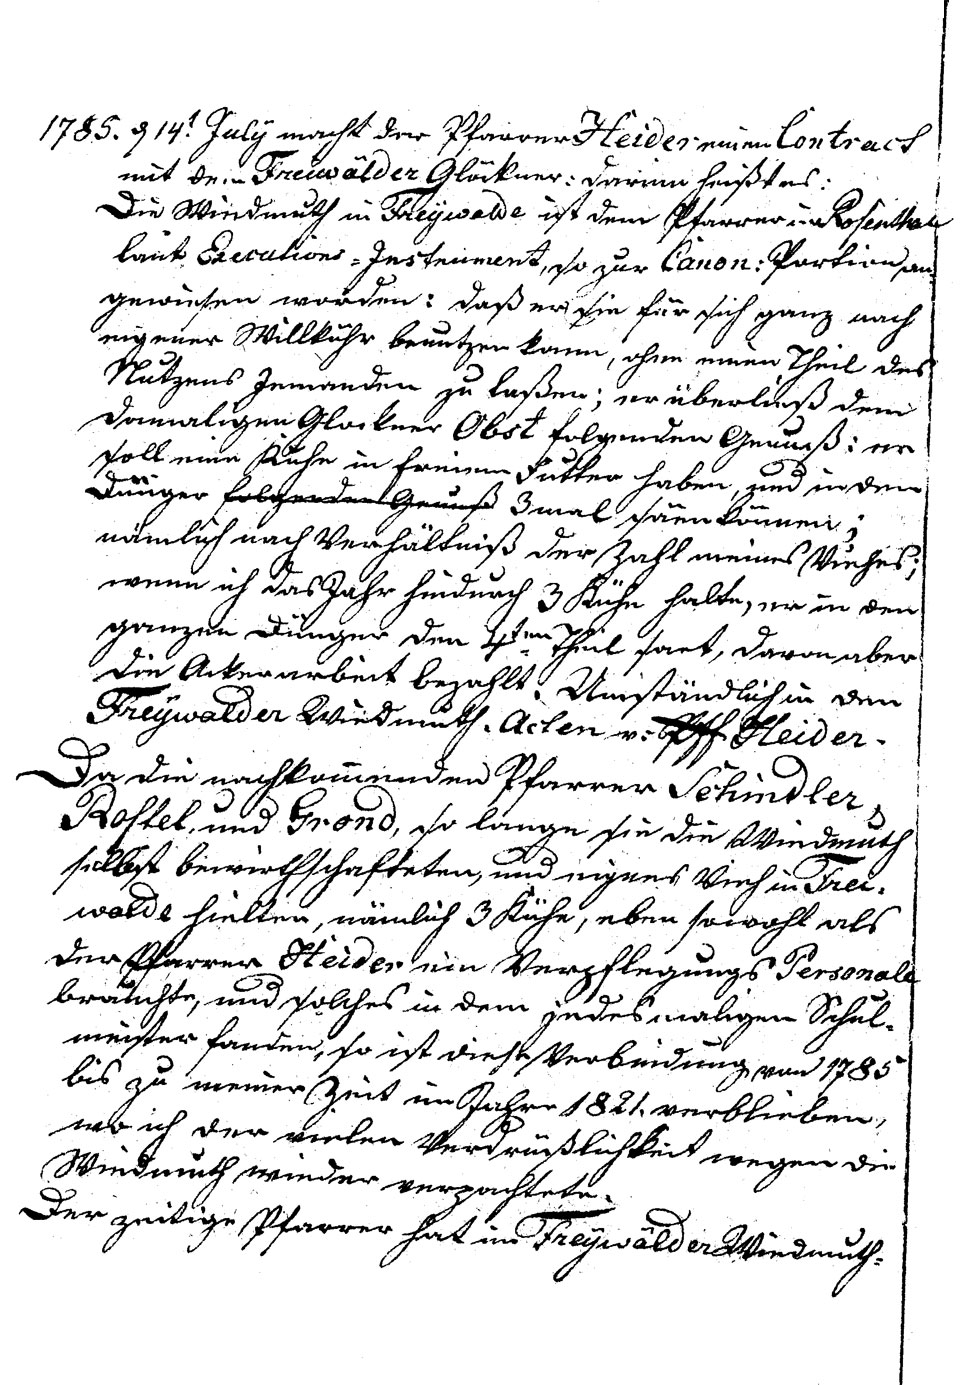 1785. d 14t July macht der Pfarrer Heider einen Contract
mit dem Freiwälder Glöckner: darinn heißt es:
Die Wiedmuth in Freÿwalde ist dem Pfarrer in Rosenthal
laut Executions-Instrument, so zur Canon: Portion an
gewiesen worden: daß er sie für sich ganz nach
eigener Willkühr benutzen kann, ohne einen Theil des
Nutzens Jemanden zu laßen; er überließ dem
damaligen Glockner Obst folgenden Genuß: er
soll eine Kuhe in freiem Futter haben, und in den
Dünger folgenden Genuß 3mal säen können;
nämlich nach Verhältniß der Zahl meines Viehes;
wenn ich das Jahr hindurch 3 Kühe halte, er in den
ganzen Dünger den 4ten Theil saet, davon aber
die Ackerarbeit bezahlt. Umständlich in den
Freÿwalder Wiedmuth-Acten v: Pff Heider.
Da die nachkommenden Pfarrer Schindler,
Rostel, und Grond, so lange sie die Wiedmuth
selbst bewirthschafteten, und eignes Vieh in Frei-
walde hielten, nämlich 3 Kühe, eben sowohl als
der Pfarrer Heider ein Verpflegungs Personale
brauchte, und solches in dem jedesmaligen Schul-
meister fanden, so ist diese Verbindung von 1785
bis zu meiner Zeit im Jahre 1821. verblieben,
wo ich der vielen Verdrüßlichkeit wegen die
Wiedmuth wieder verpachtete.
Der zeitige Pfarrer hat im Freÿwälder Wiedmuth-